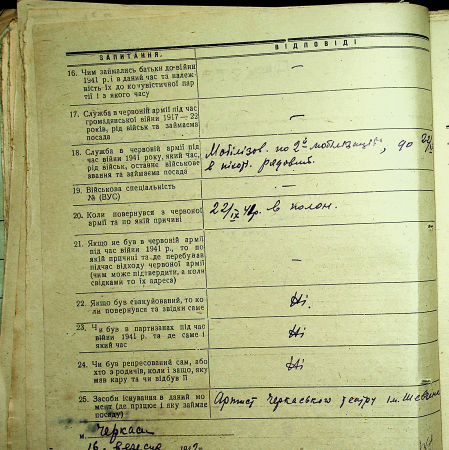 ЗАПИТАННЯ. ВІДПОВІДІ
16. Чим займались батьки до війни
1941 р. і в даний час та належ-
ність їх до комуністичної пар-
тії і з якого часу
—
17. Служба в червоній армії під час
громадянської війни 1917—22
років, рід військ та займаєма
посада
—
18. Служба в червоній армії під
час війни 1941 року, який час,
рід військ, останнє військове
звання та займаєма посада
Мобілізов. по 2й мобілізації, до
в піхоті рядовий.
19. Військова спеціальність
№ (ВУС)
—
20. Коли повернувся з червоної
армії та по якій причині
22/IX 41р. в полон.
21. Якщо не був в червоній армії
під час війни 1941 р., то по
якій причині та де перебував
підчас відходу червоної армії
(чим може підтвердити, а коли
свідками то їх адреса)
—
22. Якщо був евакуйований, то ко-
ли повернувся та звідки саме
Ні
23. Чи був в партизанах під час
війни 1941 р. та де саме і
який час
Ні
24. Чи був репресований сам, або
хто з родичів, коли і защо, яку
мав кару та чи відбув її
Ні
25. Засоби існування в даний мо-
мент (де працює і яку займає
посаду)
Артист Черкаського театру ім.
м. Черкаси
16. вересня 194